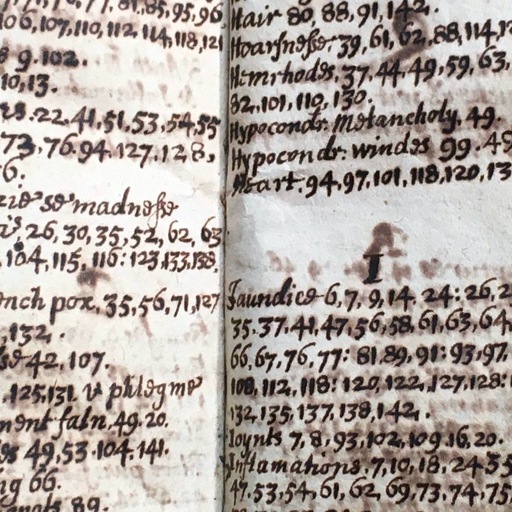 77, 81, 85, 95, 96
106, 107, 110, 112, 114, 118, 121
9. 102.
10, 13.
22. 41, 51, 53, 54, 55
73, 76. 94. 127. 128,
6.
madnesse
26, 30, 35, 52, 62, 63
104, 115, 116: 123. 133. 138.
nch pox, 35, 56, 71, 127
, 132.
42, 107.
. 125. 131. v phlegme
ment faln. 49. 20.
49, 53. 104. 141.
ng 66.
89.
Hair 80, 88, 91, 142.
Hoarsnesse. 39, 61, 62, 88, 114, 1
Hemrhodes, 37, 44, 49, 59, 63,
82, 101, 110, 130.
Hypocondr: Melancholy. 49.
Hypocondr: windes 99. 49
Heart. 94, 97, 101, 118, 120, 13
I
Jaundice 6, 7, 9, 14. 24: 26, 2
35. 37. 41, 47, 56, 58, 61, 63, 64,
66, 67, 76, 77: 81, 89, 91: 93, 97,
108, 112, 118: 120, 122, 127, 128:
132, 135, 137, 138, 142.
Joynts 7, 8, 93, 102, 109. 16. 20.
Inflamations. 7, 10, 18, 24. 35
47. 53, 54, 61, 62, 69, 73, 74, 75,